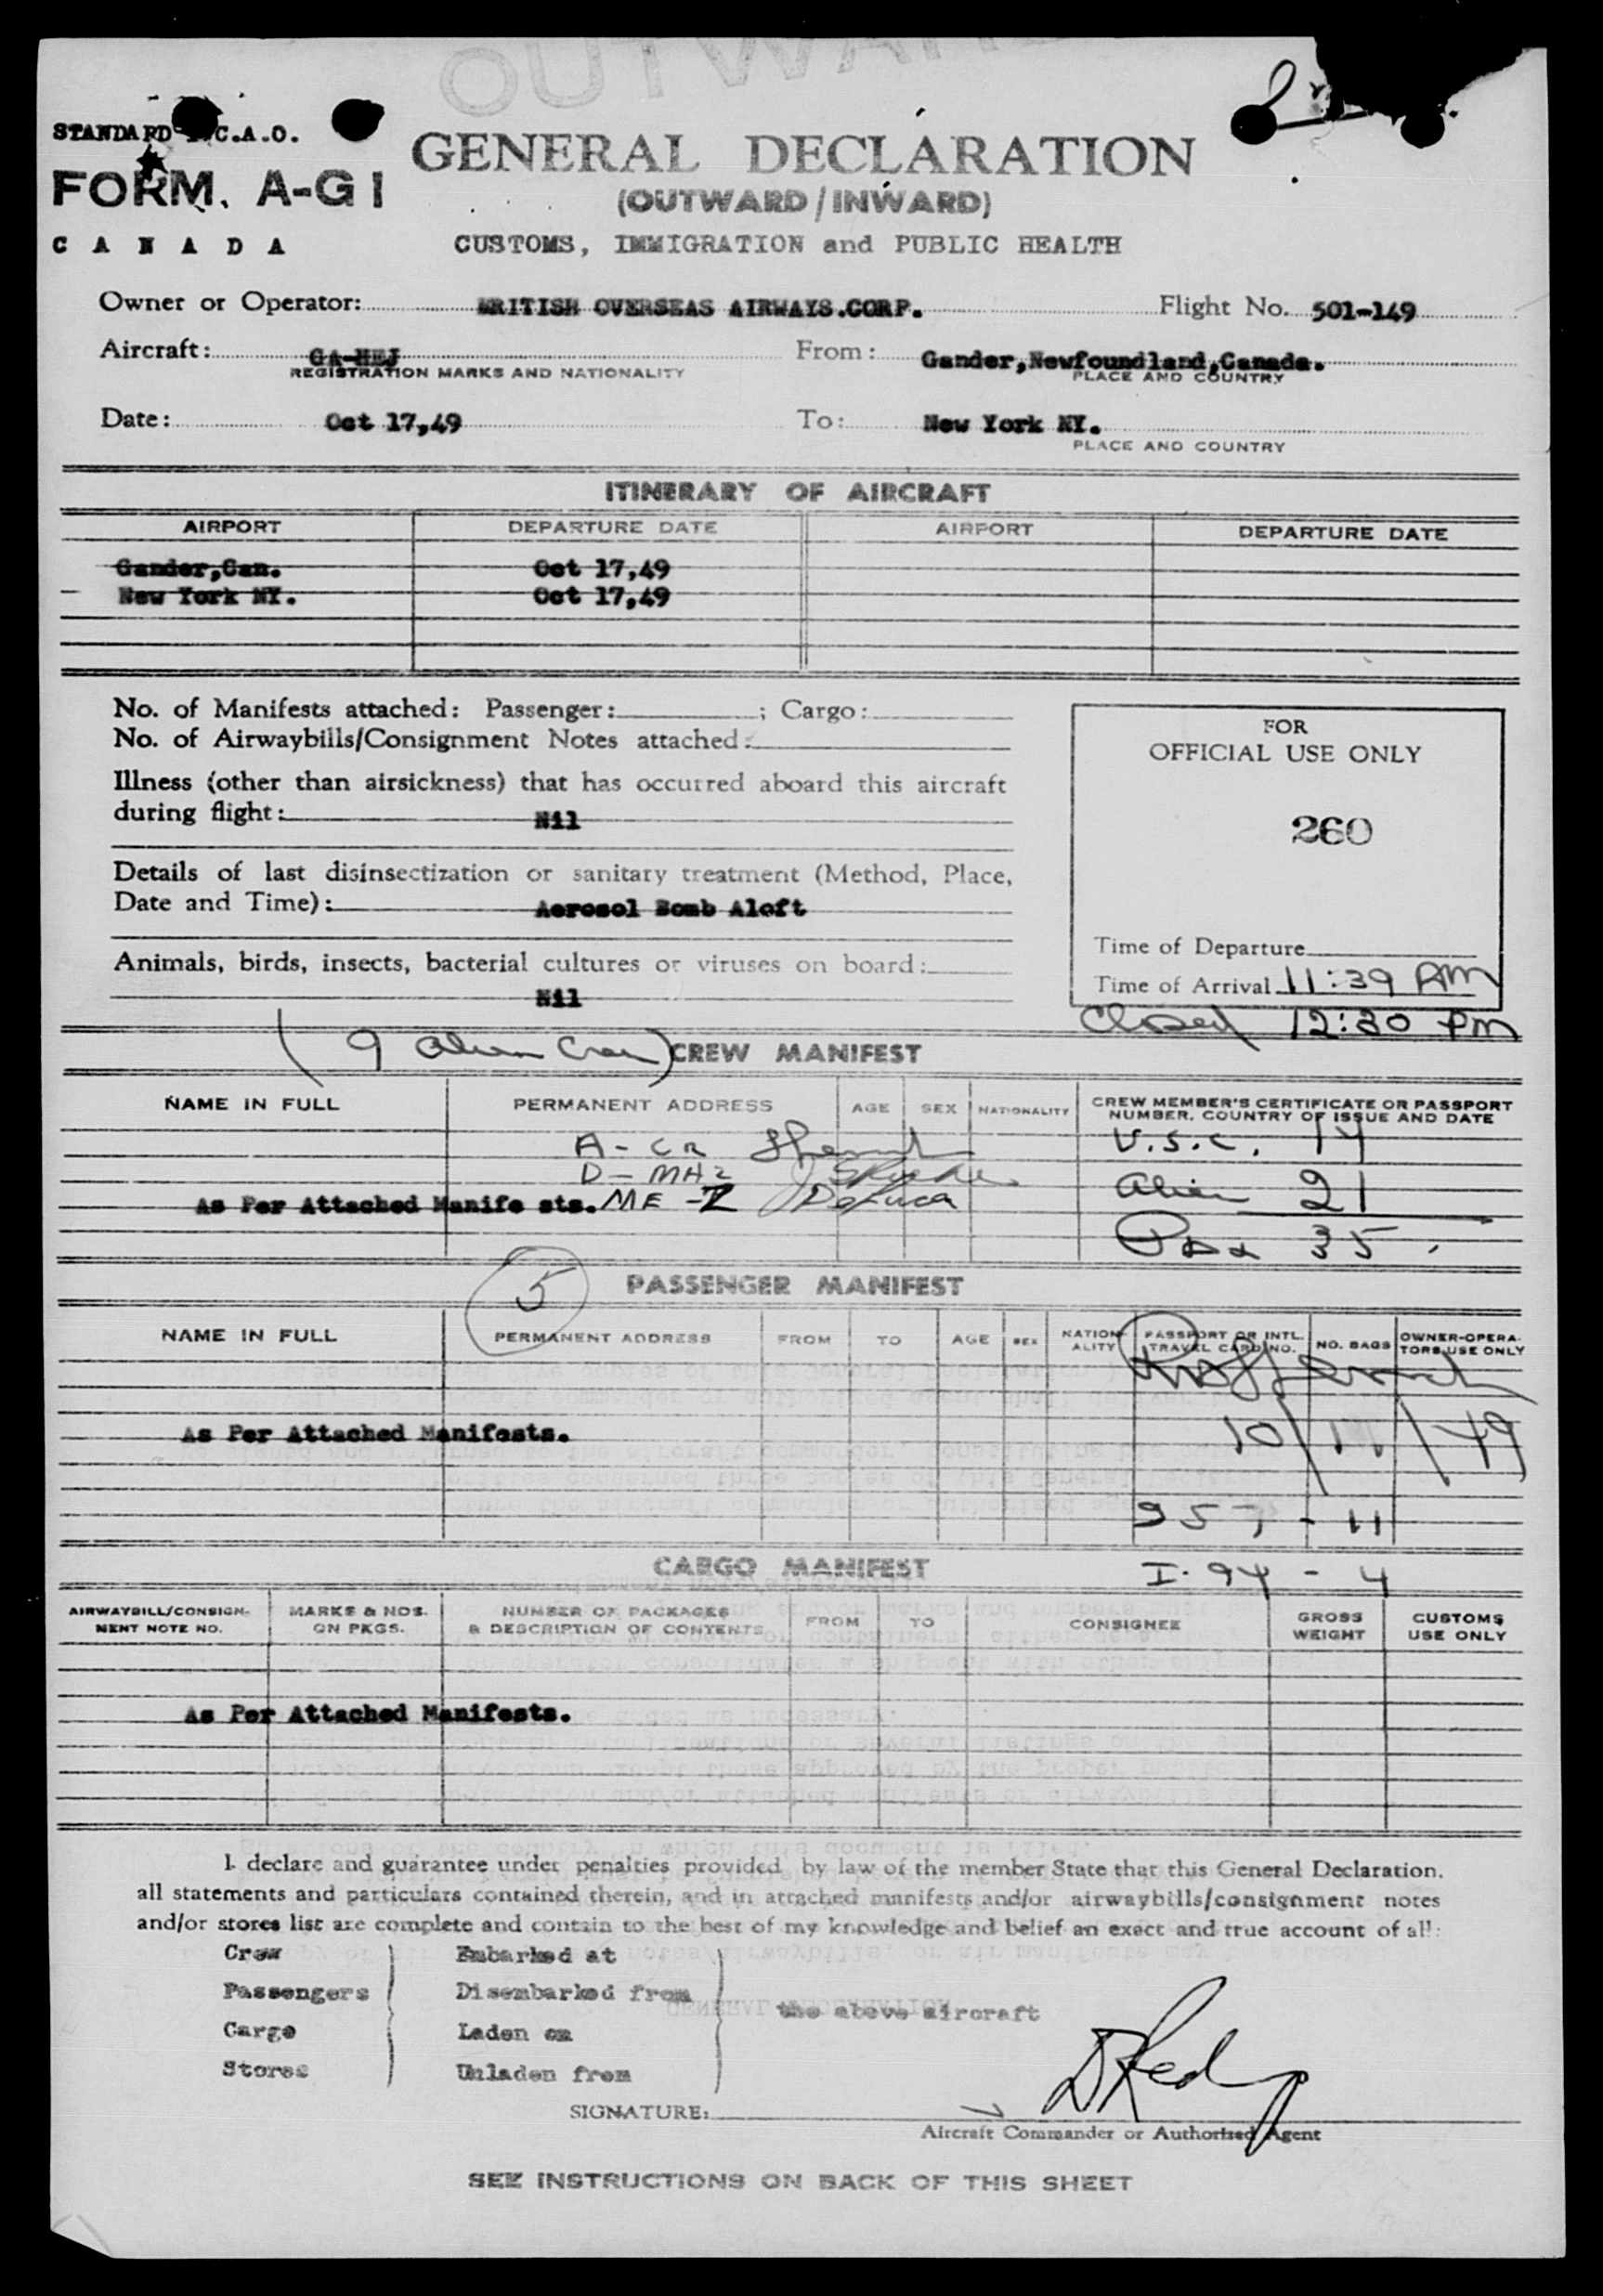 OUTWARD
STANDARD I.C.A.O.
FORM. A-G1
CANADA
GENERAL DECLARATION
(OUTWARD/INWARD)
CUSTOMS, IMMIGRATION and PUBLIC HEALTH
Owner or Operator: BRITISH OVERSEAS AIRWAYS.CORP. Flight No. 501-149
Aircraft: GA-HEJ From: Gander,Newfoundland,Canada.
REGISTRATION MARKS AND NATIONALITY PLACE AND COUNTRY
Date: Oct 17,49 To: New York NY.
PLACE AND COUNTRY
ITINERARY OF AIRCRAFT
AIRPORT DEPARTURE DATE AIRPORT DEPARTURE DATE
Gander,Can. Oct 17,49
New York NY. Oct 17,49
No. of Manifests attached: Passenger: ; Cargo:
No. of Airwaybills/Consignment Notes attached:
Illness (other than airsickness) that has occurred aboard this aircraft
during flight: Nil
Details of last disinsectization or sanitary treatment (Method, Place,
Date and Time): Aerosol Bomb Aloft
Animals, birds, insects, bacterial cultures or viruses on board:
Nil
FOR
OFFICIAL USE ONLY
260
Time of Departure
Time of Arrival 11:39 AM
Closed 12:30 PM
(9 Alien Crew) CREW MANIFEST
NAME IN FULL PERMANENT ADDRESS AGE SEX NATIONALITY CREW MEMBER'S CERTIFICATE OR PASSPORT
NUMBER, COUNTRY OF ISSUE AND DATE
A - CR U.S.C. 14
D - MH2
Alien 21
As Per Attached Manife sts. ME - I DeLuca
Pax 35
5 PASSENGER MANIFEST
NAME IN FULL PERMANENT ADDRESS FROM TO AGE SEX NATION-
ALITY PASSPORT OR INTL.
TRAVEL CARD NO. NO. BAGS OWNER-OPERA-
TORS USE ONLY
As Per Attached Manifests.
10/17/49
957 - 11
CARGO MANIFEST
I-94 - 4
AIRWAYBILL/CONSIGN-
MENT NOTE NO. MARKS & NOS.
ON PKGS. NUMBER OF PACKAGES
& DESCRIPTION OF CONTENTS FROM TO CONSIGNEE GROSS
WEIGHT CUSTOMS
USE ONLY
As Per Attached Manifests.
I declare and guarantee under penalties provided by law of the member State that this General Declaration.
all statements and particulars contained therein, and in attached manifests and/or airwaybills/consignment notes
and/or stores list are complete and contain to the best of my knowledge and belief an exact and true account of all:
Crew Embarked at
Passengers Disembarked from
the above aircraft
Cargo Laden on
Stores Unladen from
SIGNATURE:
Aircraft Commander or Authorized Agent
SEE INSTRUCTIONS ON BACK OF THIS SHEET